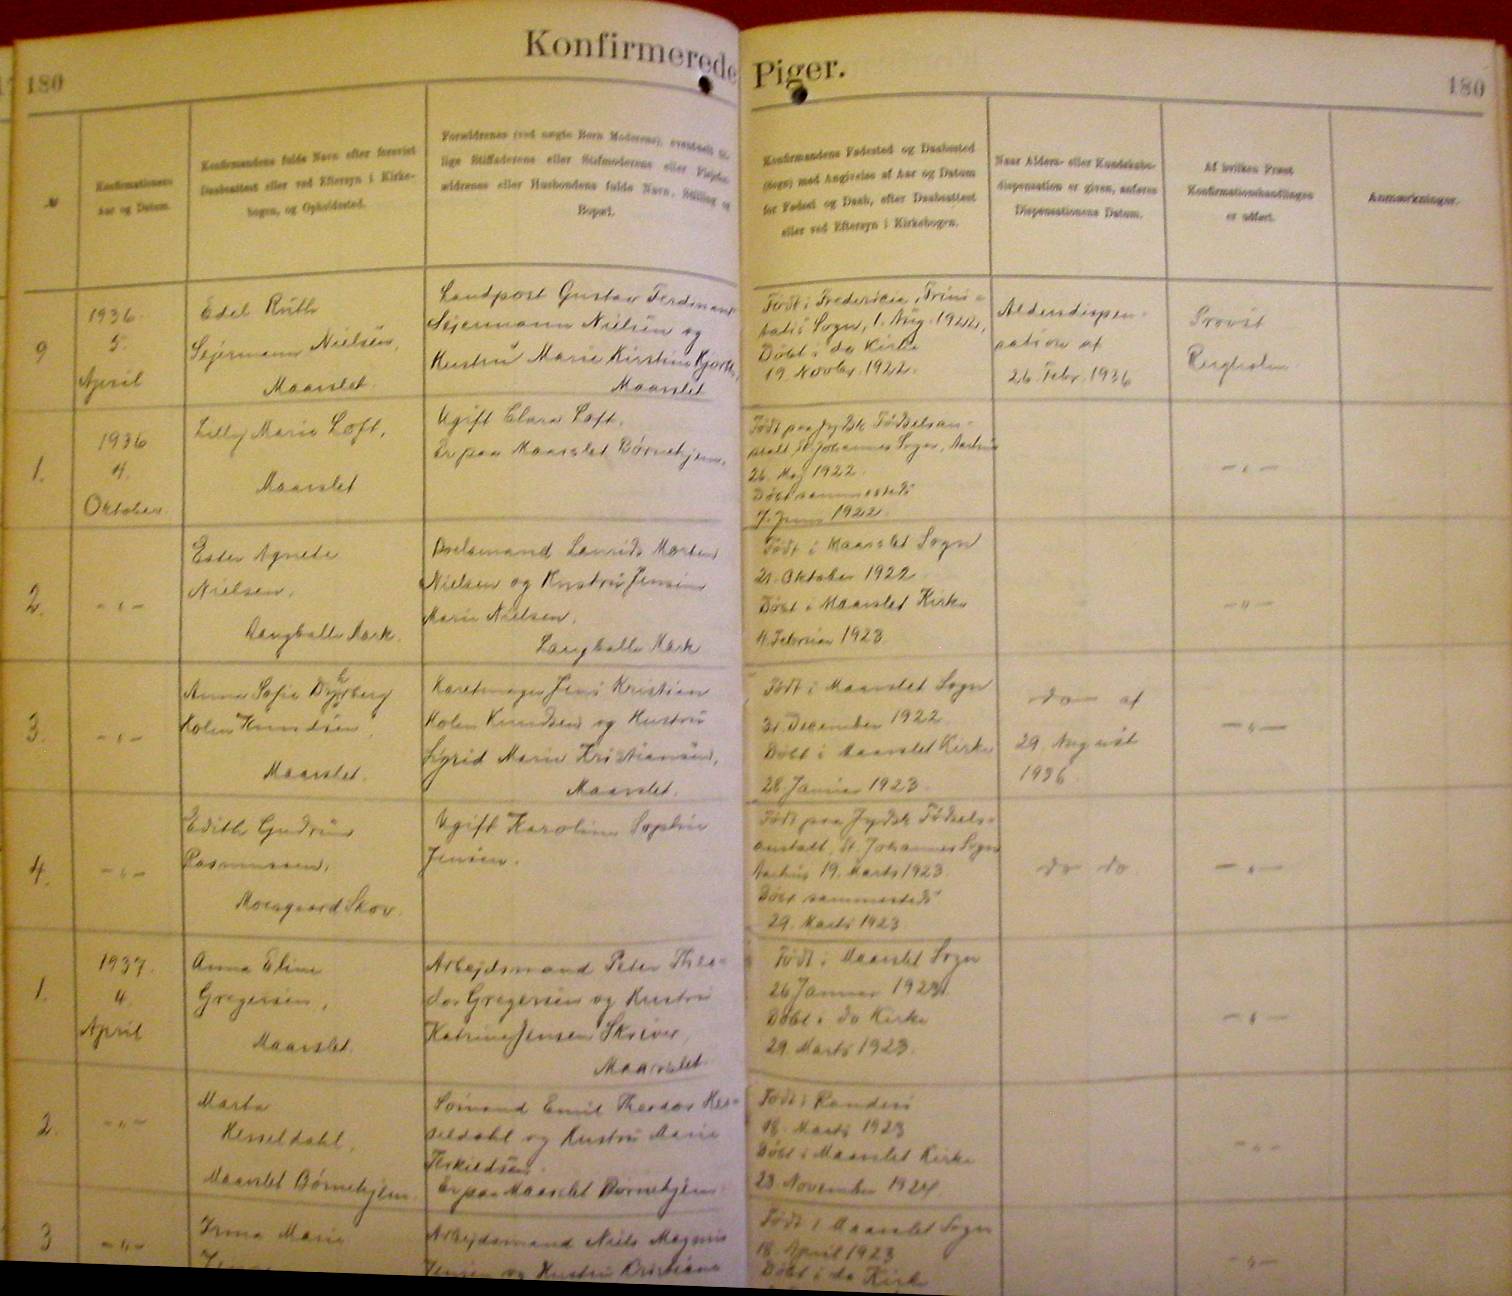 Konfirmerede Piger.
180
180
№
Konfirmationens
Aar og Datum.
Konfirmandens fulde Navn efter forevist
Daabsattest eller ved Eftersyn i Kirke-
bogen, og Opholdssted.
Forældrenes (ved uægte Børn Moderens), eventuelt
lige Stiffaderens eller Stifmoderens eller Plejefor-
ældrenes eller Husbondens fulde Navn, Stilling og
Bopæl.
Konfirmandens Fødested og Daabssted
(Sogn) med Angivelse af Aar og Datum
for Fødsel og Daab, efter Daabsattest
eller ved Eftersyn i Kirkebogen.
Naar Alders- eller Kundskabs-
dispensation er given, anføres
Dispensationens Datum.
Af hvilken Præst
Konfirmationshandlingen
er udført.
Anmærkninger.
9
1936.
5.
April
Edel Ruth
Sejermann Nielsen,
Maarslet.
Landpost Gustav Ferdinand
Sejermann Nielsen og
Hustru Marie Kirstine
Maarslet
Født i Fredericia, Trini=
tatis Sogn, 1. Aug. 1922,
Døbt i do Kirke
19. Novbr. 1922.
Aldersdispen-
sation af
26. Febr. 1936
Provst
1.
1936
4.
Oktober
Lilly Marie Loft,
Maarslet
Ugift Clara Loft.
Er paa Maarslet Børnehjem.
Født paa Jydsk Fødselsan-
stalt, St. Johannes Sogn, Aarhus
26. Maj 1922.
Døbt sammesteds
7. Juni 1922.
- " -
2.
- " -
Ester Agnete
Nielsen,
Langballe Mark.
Boelsmand Laurids Morten
Nielsen og Hustru Jensine
Marie Nielsen,
Langballe Mark
Født i Maarslet Sogn
21. Oktober 1922.
Døbt i Maarslet Kirke
4. Februar 1923
- " -
3.
- " -
Anna Sofie Dyrberg
Holm Knudsen,
Maarslet.
Karetmager Jens Kristian
Holm Knudsen og Hustru
Sigrid Marie Kristiansen,
Maarslet.
Født i Maarslet Sogn
31. December 1922.
Døbt i Maarslet Kirke
28. Januar 1923.
do af
29. August
1936.
- " -
4.
- " -
Edith Gudrun
Rasmussen,
Moesgaard Skov.
Ugift Karoline Sophie
Jensen.
Født paa Jydsk Fødsels=
anstalt, St. Johannes Sogn
Aarhus 19. Marts 1923.
Døbt sammesteds
29. Marts 1923.
do do
- " -
1.
1937.
4.
April
Anna Eline
Gregersen,
Maarslet.
Arbejdsmand Peter Theo=
dor Gregersen og Hustru
Katrine Jensen Skriver,
Maarslet.
Født i Maarslet Sogn
26 Januar 1923.
Døbt i do Kirke
29. Marts 1923.
- " -
2.
- " -
Marta
Hesseldahl,
Maarslet Børnehjem.
Sømand Emil Theodor Hes=
seldahl og Hustru Marie
Terkildsen.
Er paa Maarslet Børnehjem.
Født i Randers
18. Marts 1923
Døbt i Maarslet Kirke
23. November 1924
- " -
3
- " -
Irma Marie
Arbejdsmand Niels Magnus
Jensen og Hustru Kristiane
Født i Maarslet Sogn
18. April 1923
Døbt i do Kirke
- " -